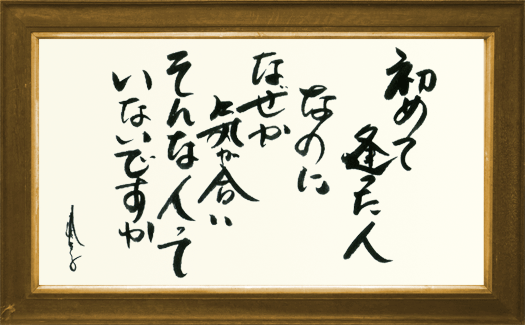 初めて
逢った人
なのに
なぜか
気が合い
そんな人って
いないですか